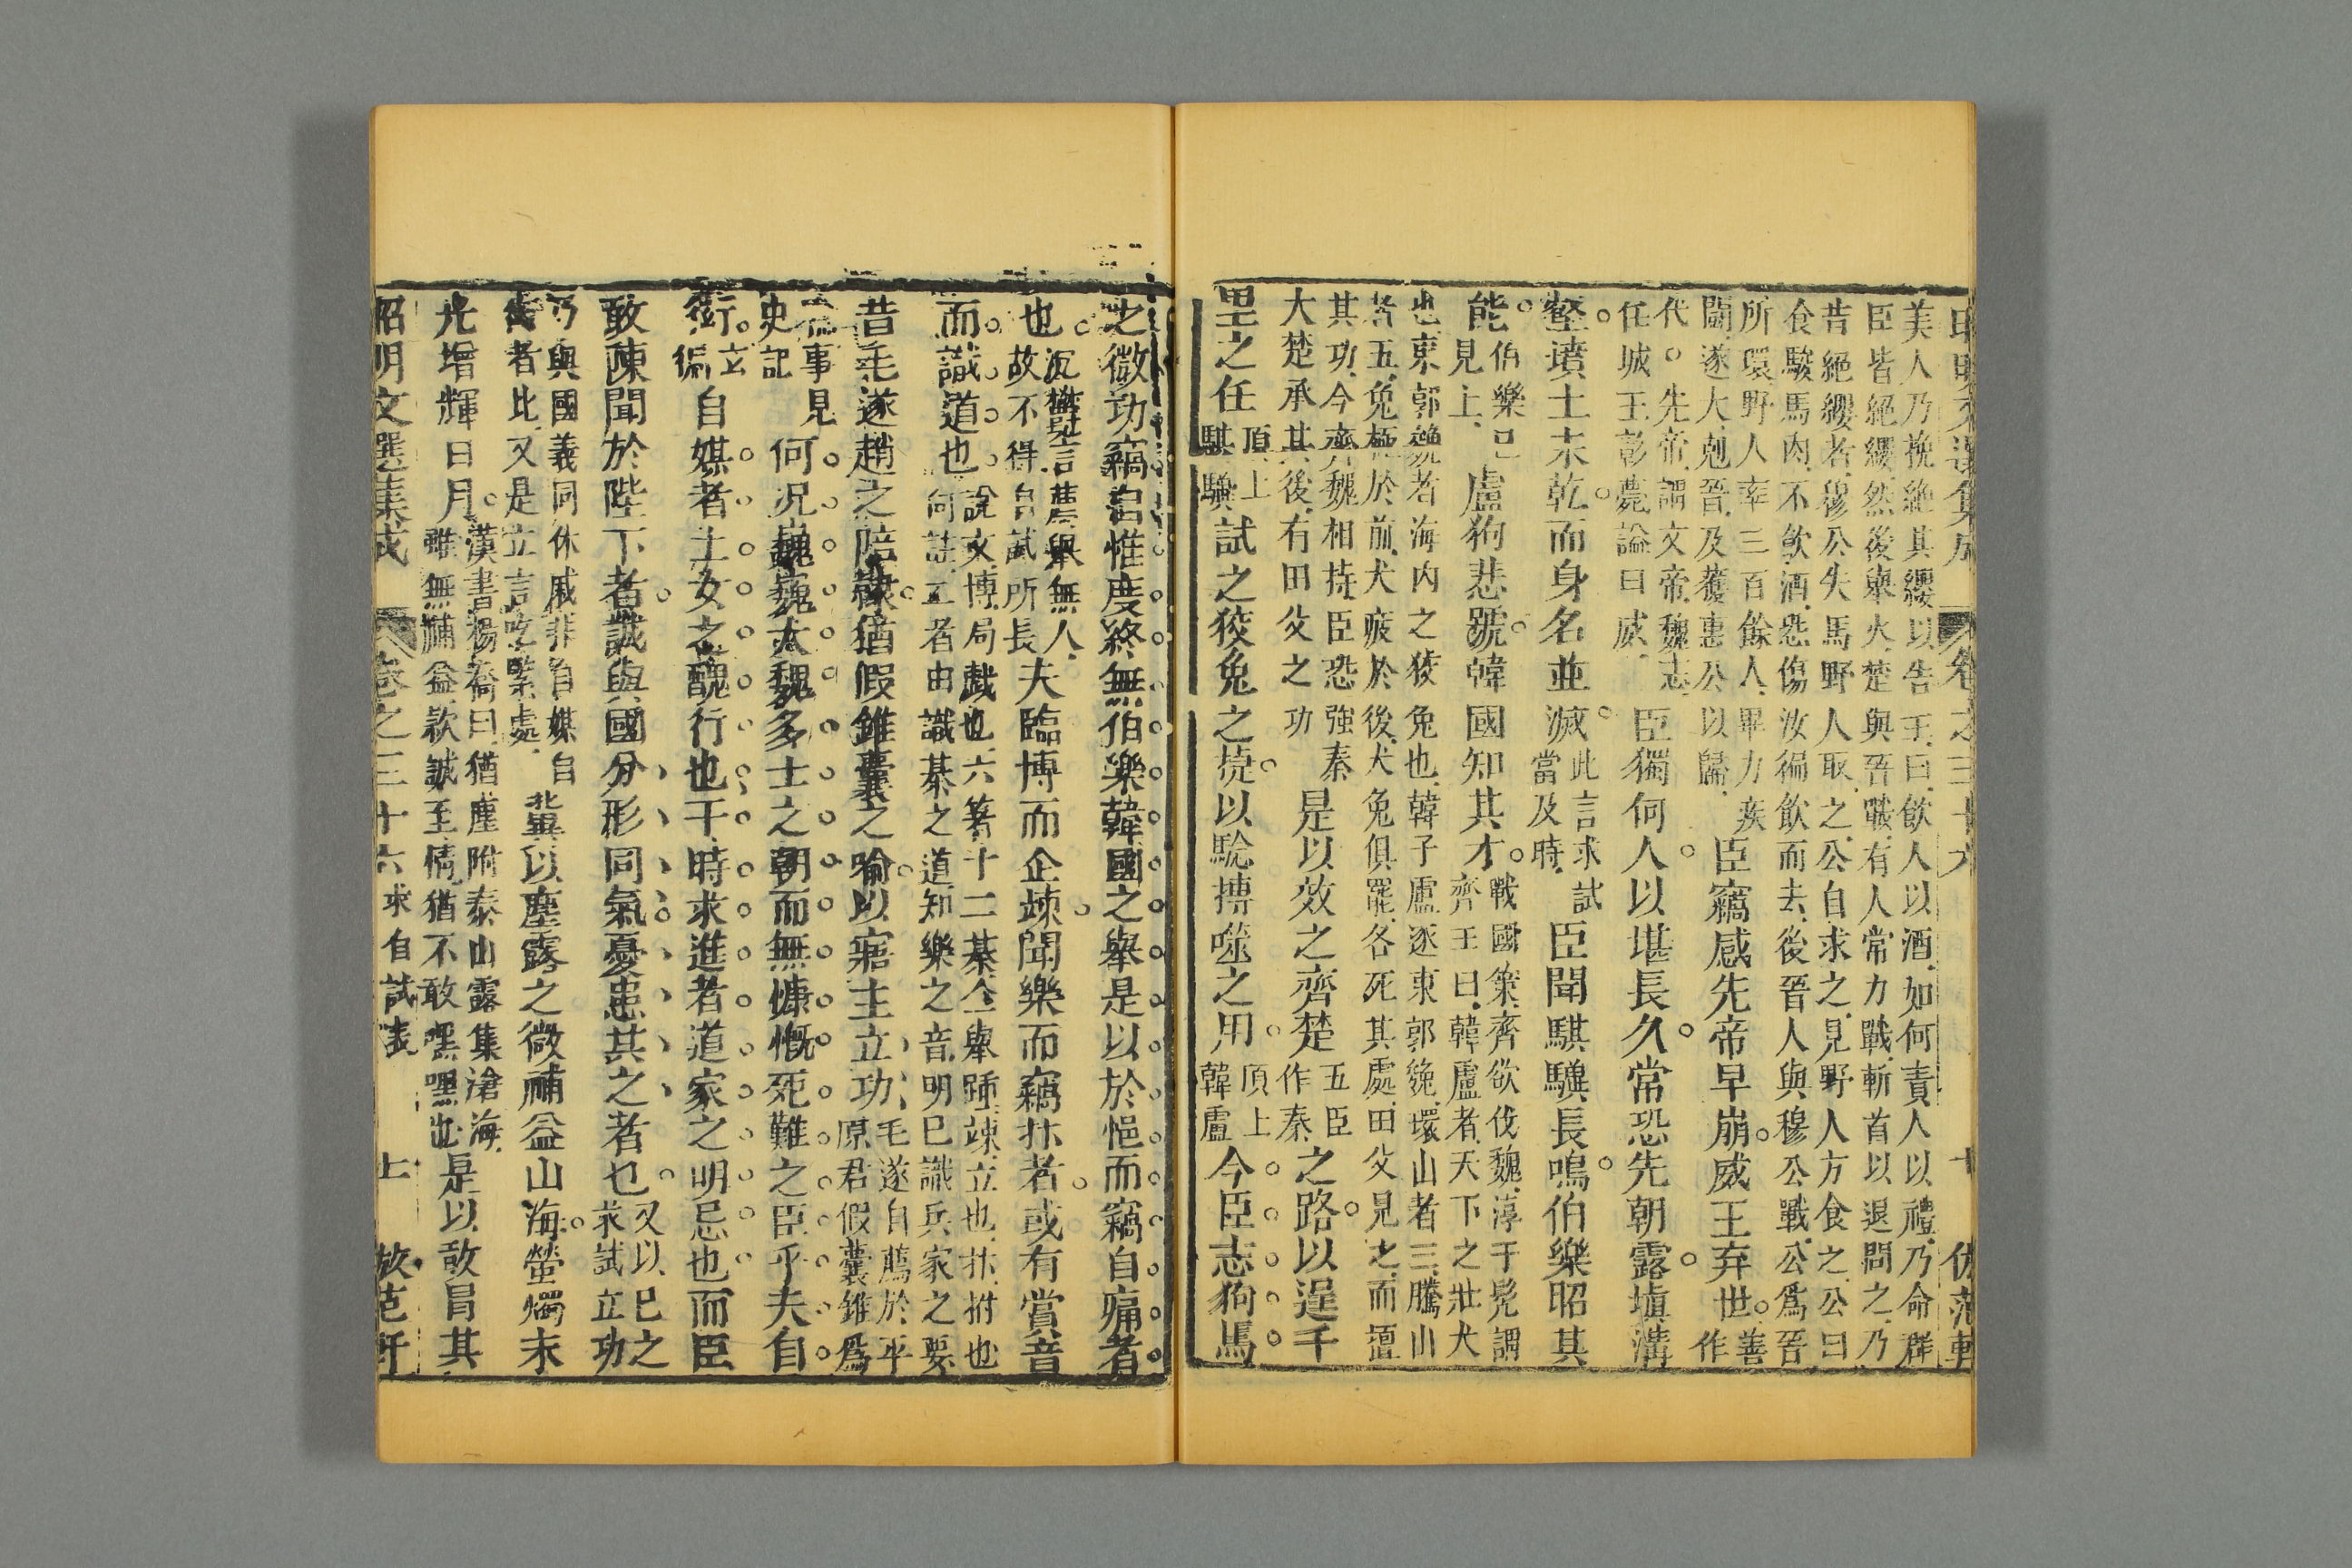 昭明文選集成 卷之三十六 十 倣范軒
美人乃挽絕其纓以告王曰飲人以酒如何責人以禮乃命群
臣皆絕纓然後舉火楚與晉戰有人常力戰斬首以退問之乃
昔絕纓者穆公失馬野人取之公自求之見野人方食之公曰
食駿馬肉不飲酒恐傷汝徧飲而去後晉人與穆公戰公爲晉
所環野人率三百餘人畢力疾
鬭遂大剋晉及獲惠公以歸
臣竊感先帝早崩威王弃世
善作
代。先帝謂文帝魏志
任城王彰薨諡曰威
臣獨何人以堪長久常恐先朝露塡溝
壑墳土未乾而身名並滅
此言求試
當及時
臣聞騏驥長鳴伯樂昭其
能
伯樂已
見上
盧狗悲號韓國知其才
戰國策齊欲伐魏淳于髡謂
齊王曰韓盧者天下之壯犬
也東郭㕙者海內之狡兔也韓子盧逐東郭㕙環山者三騰山
者五兔極於前犬疲於後犬兔俱罷各死其處田父見之而擅
其功今齊魏相持臣恐強秦
大楚承其後有田父之功
是以效之齊楚
五臣
作秦
之路以逞千
里之任
頂上
騏驥
試之狡兔之捷以驗搏噬之用
頂上
韓盧
今臣志狗馬
之微功竊自惟度終無伯樂韓國之舉是以於悒而竊自痛者
也
沉摯慰言舊舉無人
故不得自試所長
夫臨博而企竦聞樂而竊抃者或有賞音
而識道也
說文博局戲也六箸十二棊企舉踵竦立也抃拊也
向註工者由識棊之道知樂之音明已識兵家之要
昔毛遂趙之陪隸猶假錐囊之喻以寤主立功
毛遂自薦於平
原君假囊錐爲
事見
史記
何况巍巍大魏多士之朝而無慷慨死難之臣乎夫自
衒
立
徧
自媒者士女之醜行也干時求進者道家之明忌也而臣
敢陳聞於陛下者誠與國分形同氣憂患其之者也
又以已之
求試立功
乃與國義同休戚非自媒自
衒者比又是立言吃緊處
冀以塵露之微補益山海螢燭末
光增輝日月
漢書楊喬曰猶塵附泰山露集滄海
雖無補益款誠至情猶不敢嘿嘿也
是以敢冒其
昭明文選集成 卷之三十六 求自試表 上 倣范軒